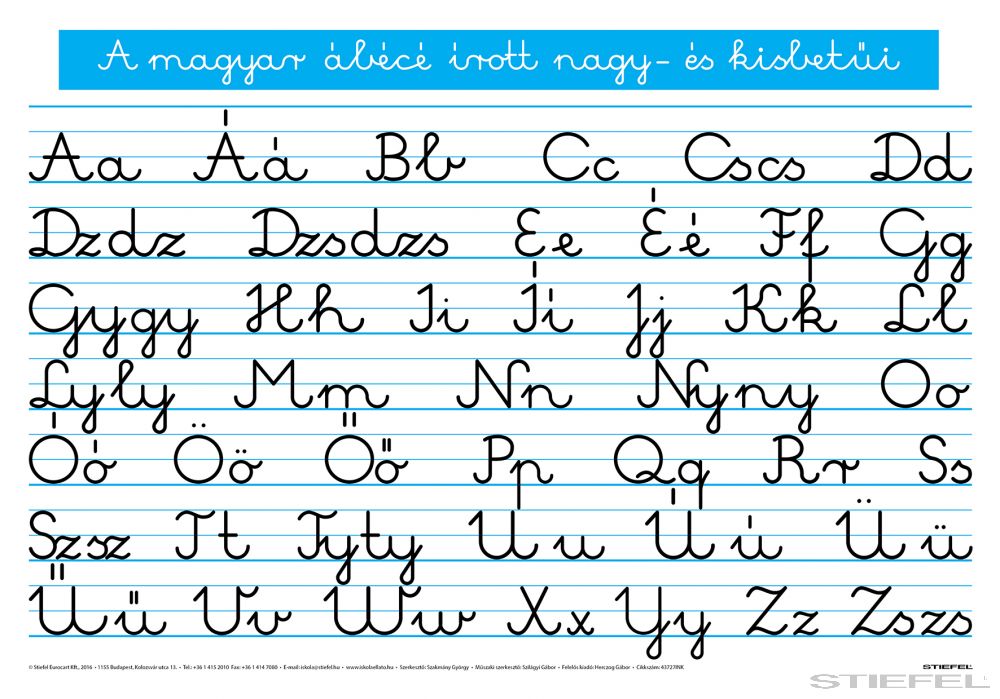 A magyar ábécé írott nagy- és kisbetűi
Aa Áá Bb Cc Cscs Dd
Dzdz Dzsdzs Ee Éé Ff Gg
Gygy Hh Ii Íí Jj Kk Ll
Lyly Mm Nn Nyny Oo
Óó Öö Őő Pp Qq Rr Ss
Szsz Tt Tyty Uu Úú Üü
Űű Vv Ww Xx Yy Zz Zszs
© Stiefel Eurocart Kft., 2016 • 1155 Budapest, Kolozsvár utca 13. • Tel.: +36 1 415 2010 Fax: +36 1 414 7080 • E-mail: iskola@stiefel.hu • www.iskolaellato.hu • Szerkesztő: Szakmány György • Műszaki szerkesztő: Szilágyi Gábor • Felelős kiadó: Herczog Gábor • Cikkszám: 43727INK
STIEFEL
STIEFEL